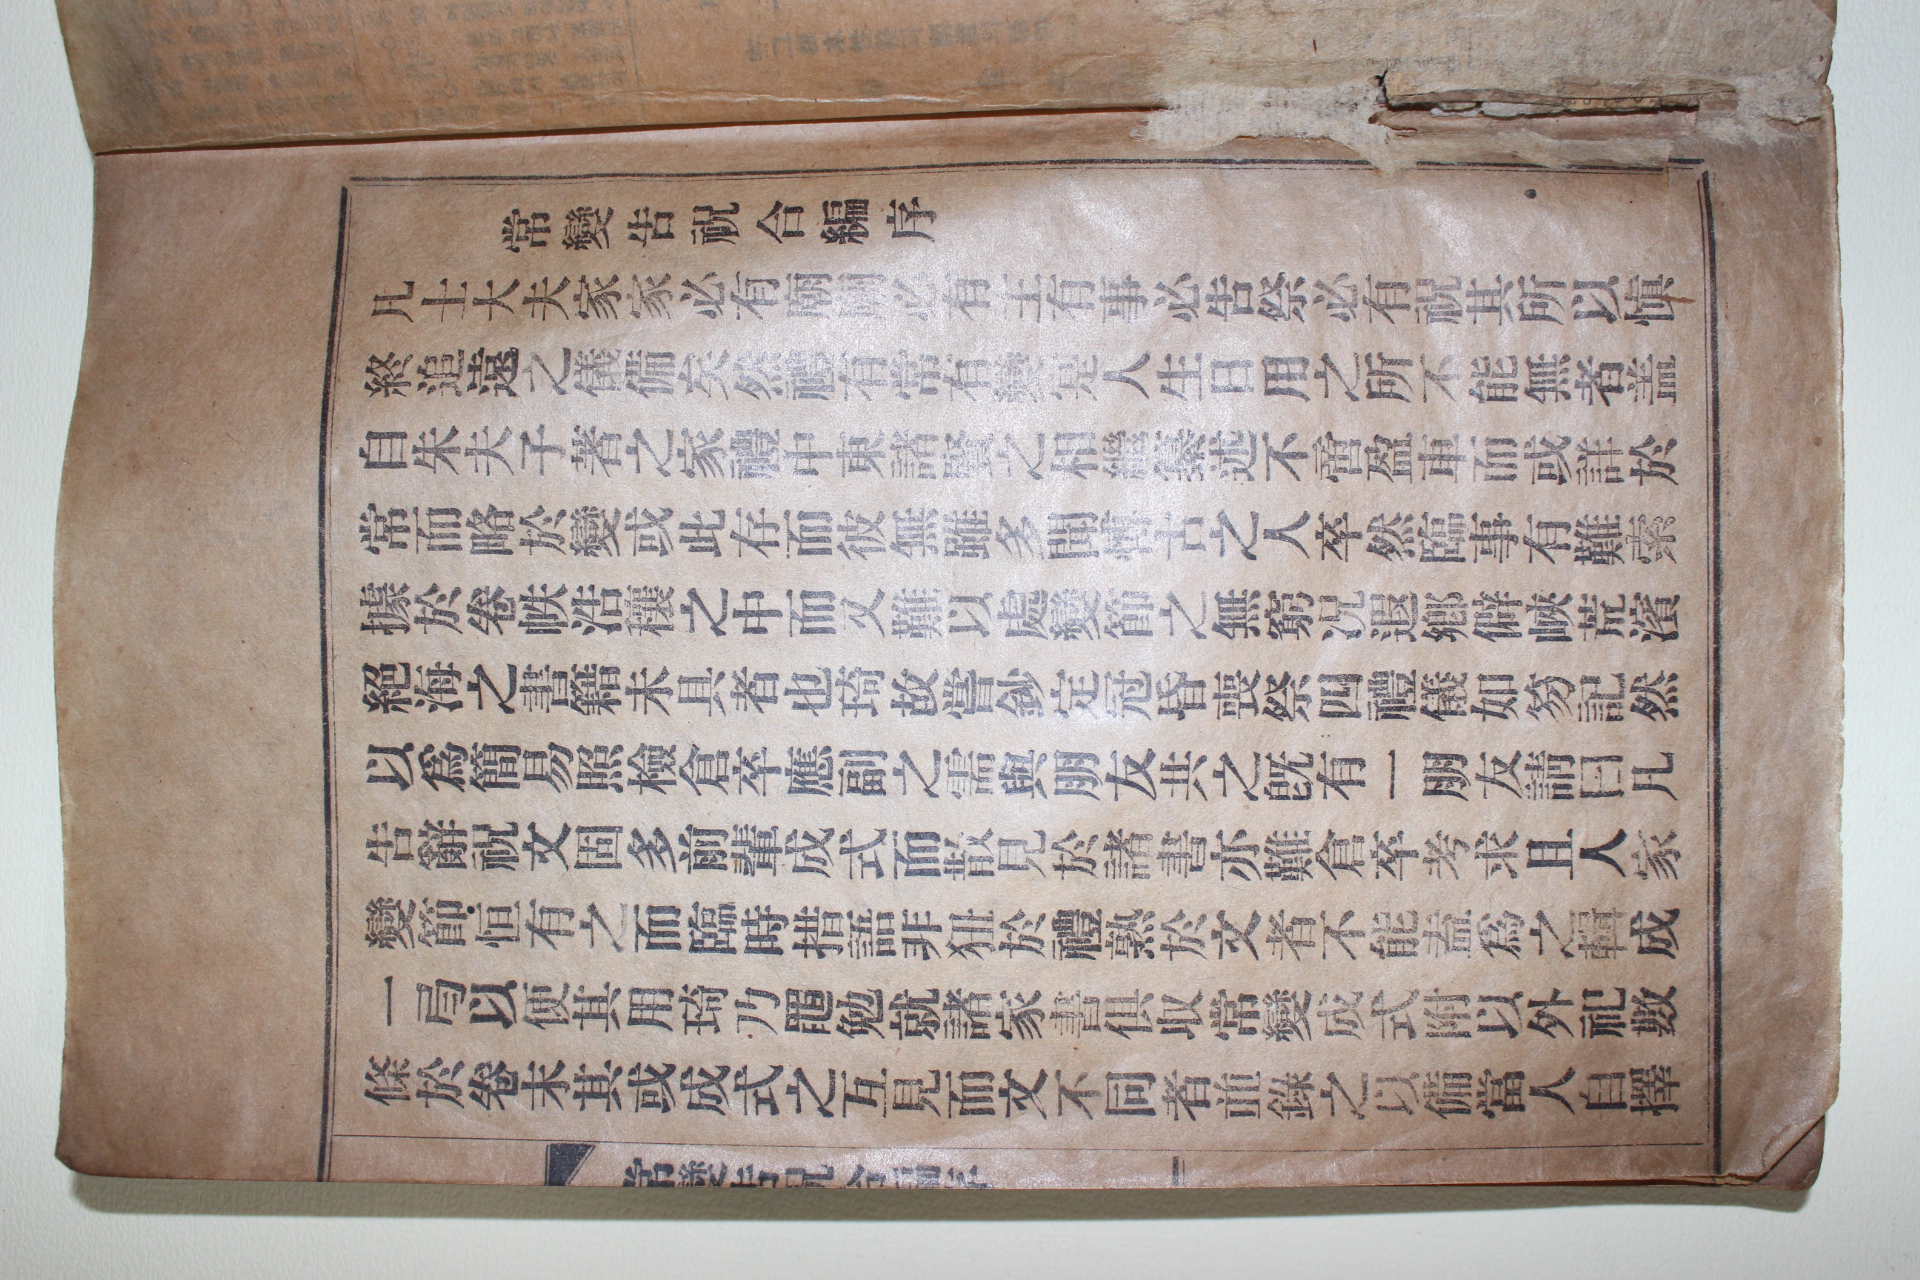 常變告祝合編序
凡士大夫家家必有廟廟必有主有事必告祭必有祝其所以愼
終追遠之儀備矣然禮有常有變是人生日用之所不能無者盖
自朱夫子著之家禮中東諸賢之相繼纂述不啻盈車而或詳於
常而略於變或此存而彼無雖多聞博古之人卒然臨事有難索
據於卷帙浩穰之中而又難以處變節之無窮况遐鄕僻峽荒濱
絕海之書籍未具者也琦故嘗鈔定冠昏喪祭四禮儀如笏記然
以爲簡易照檢倉卒應副之需與朋友共之旣有一朋友請曰凡
告辭祝文固多前輩成式而散見於諸書亦難倉卒考求且人家
變節恒有之而臨時措語非狃於禮熟於文者不能盍爲之輯成
一局以便其用琦乃黽勉就諸家書俱收常變成式附以外祀數
條於卷末其或成式之互見而文不同者並錄之以備當人自擇
常變告祝合編序 一